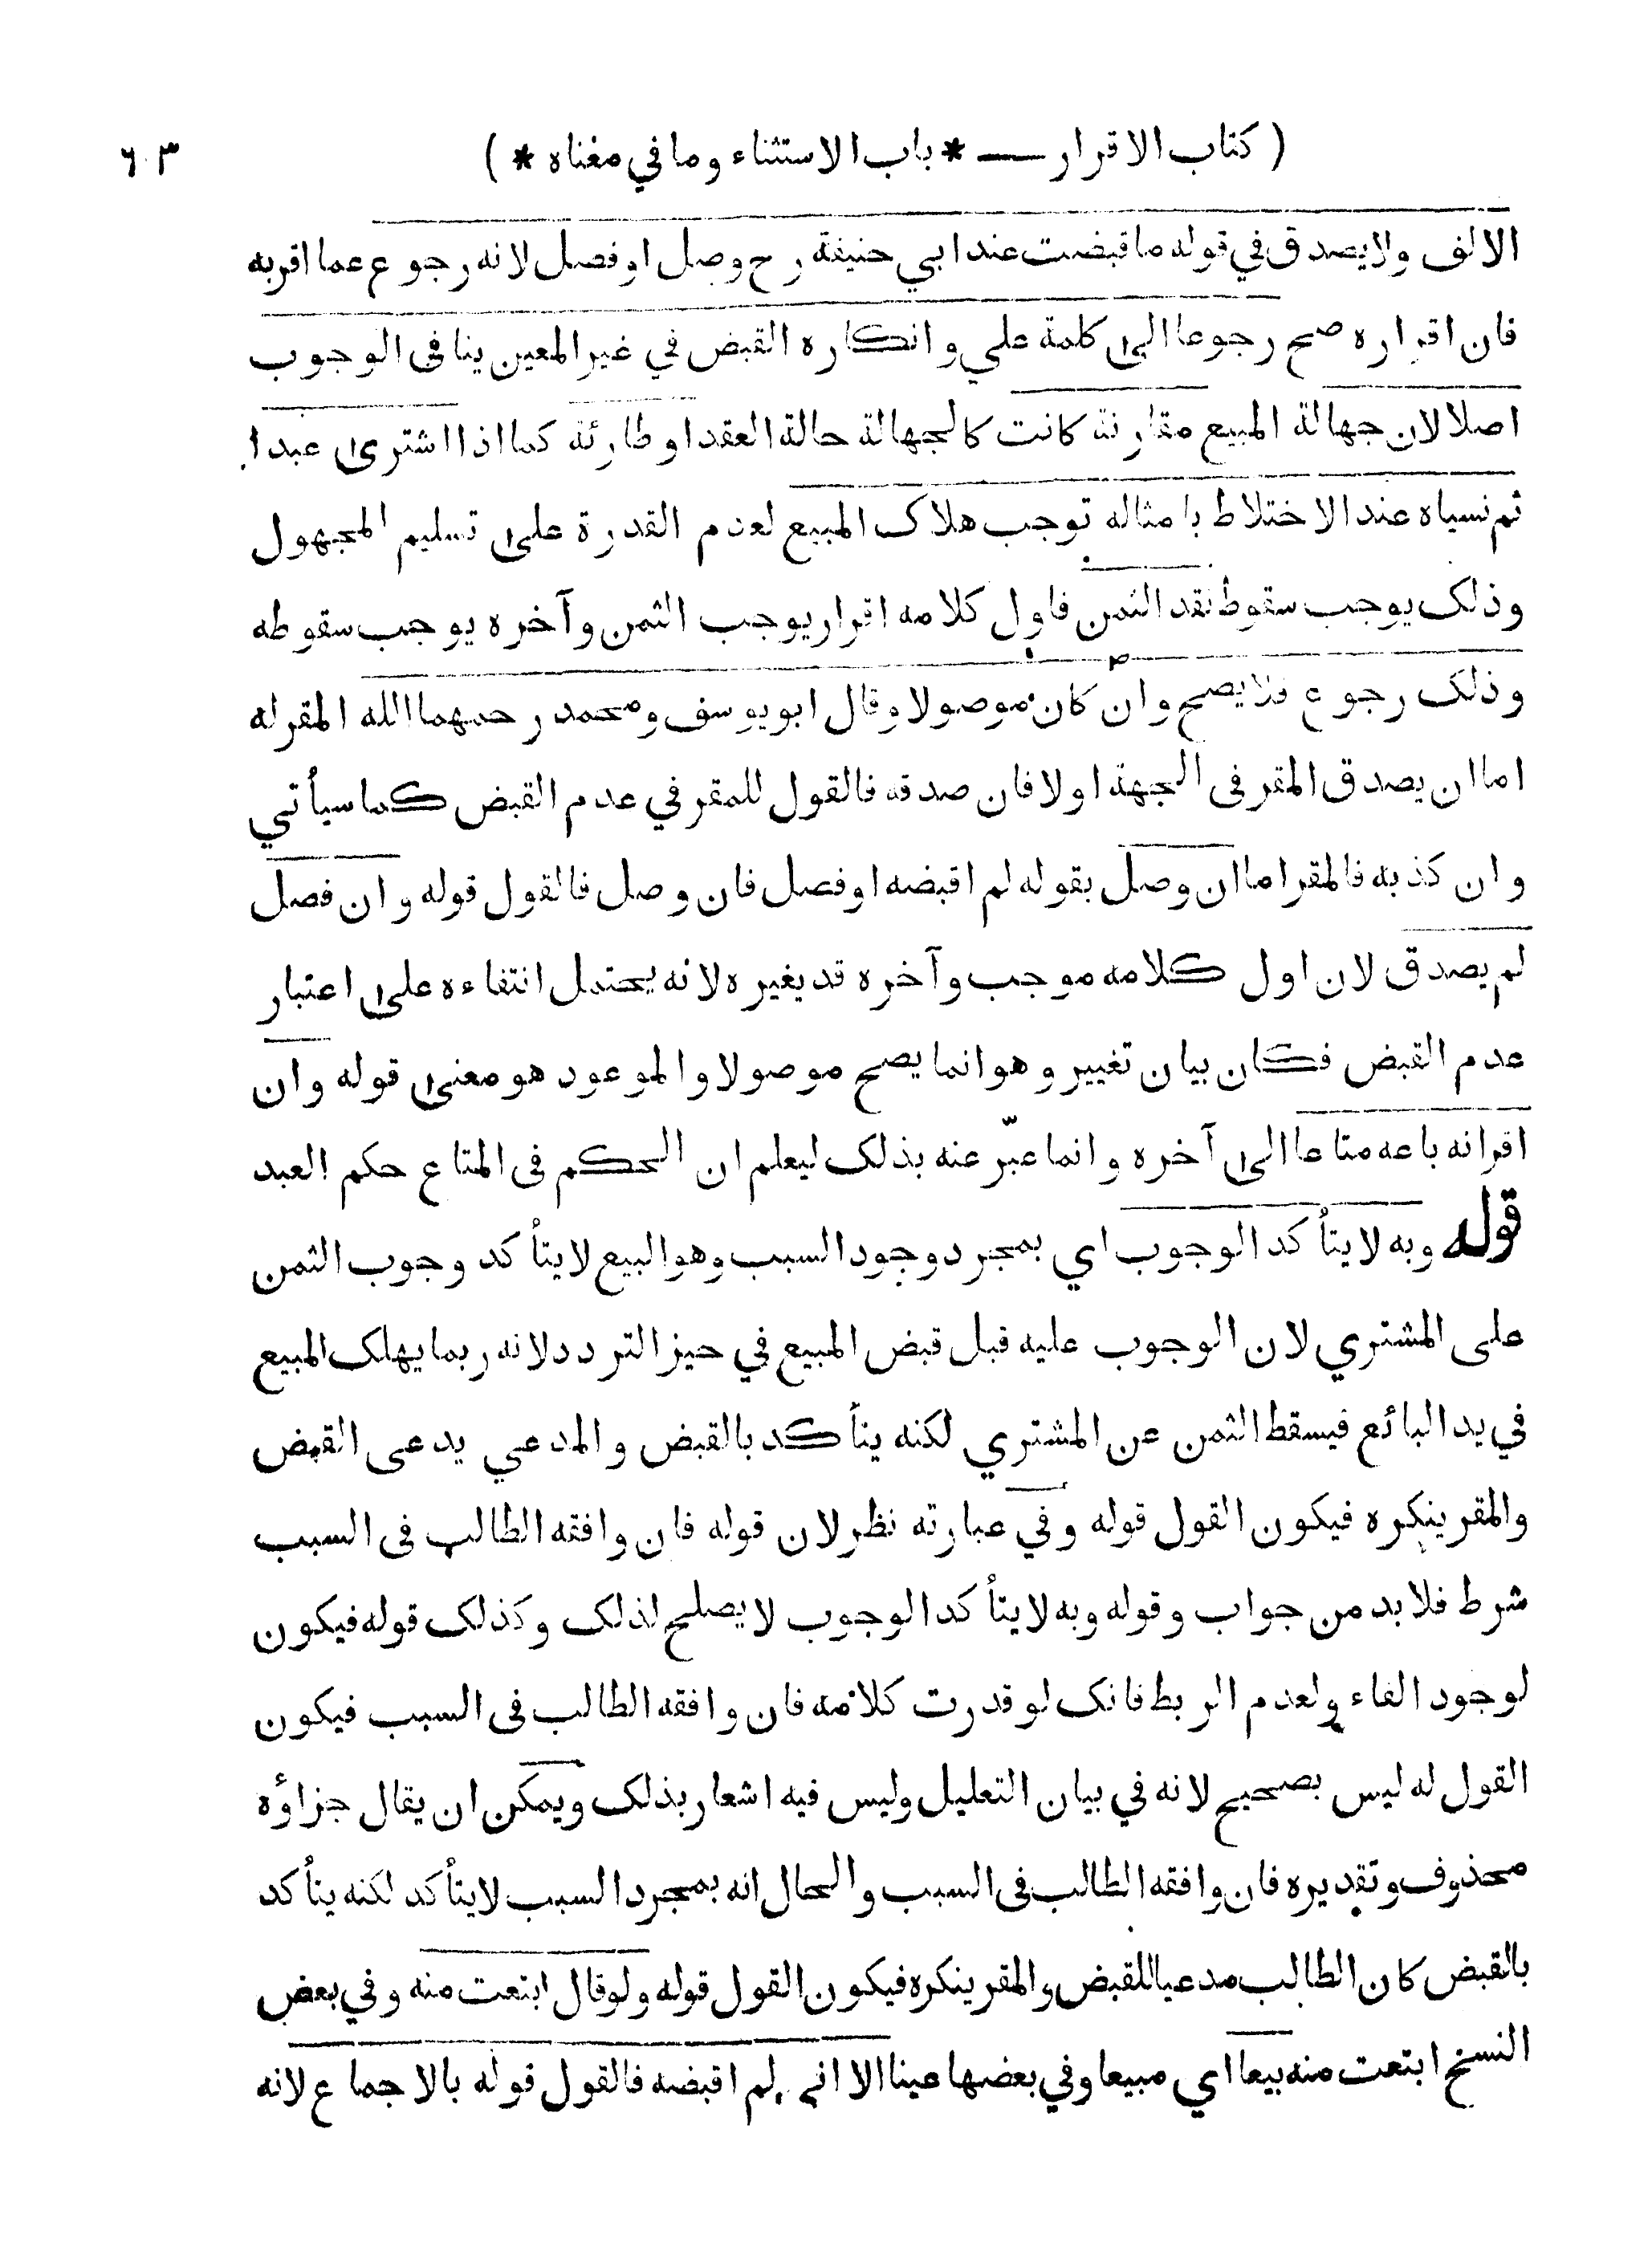 ( كتاب الاقرار — * باب الاستثناء وما في معناه * ) ٦٠٣
الالف ولا يصدق في قوله ما قبضت عند ابي حنيفة رح وصل او فصل لانه رجوع عما اقربه
فان اقراره صح رجوعا الى كلمة علي وانكاره القبض في غير المعين ينافى الوجوب
اصلا لان جهالة المبيع مقارنة كانت كالجهالة حالة العقد او طارئة كما اذا اشترى عبدا
ثم نسياه عند الاختلاط بامثاله توجب هلاك المبيع لعدم القدرة على تسليم المجهول
وذلك يوجب سقوط نقد الثمن فاول كلامه اقرار يوجب الثمن وآخره يوجب سقوطه
وذلك رجوع فلا يصح وان كان موصولا وقال ابو يوسف ومحمد رحمهما الله المقرله
اما ان يصدق المقر فى الجهة اولا فان صدقه فالقول للمقر في عدم القبض كما سيأتي
وان كذبه فالمقر اما ان وصل بقوله لم اقبضه او فصل فان وصل فالقول قوله وان فصل
لم يصدق لان اول كلامه موجب وآخره قد يغيره لانه يحتمل انتفاءه على اعتبار
عدم القبض فكان بيان تغيير وهو انما يصح موصولا والموعود هو معنى قوله وان
اقرانه باعه متاعا الى آخره وانما عبّر عنه بذلك ليعلم ان الحكم فى المتاع حكم العبد
قوله وبه لا يتأكد الوجوب اي بمجرد وجود السبب وهو البيع لا يتأكد وجوب الثمن
على المشتري لان الوجوب عليه قبل قبض المبيع في حيز التردد لانه ربما يهلك المبيع
في يد البائع فيسقط الثمن عن المشتري لكنه يتأكد بالقبض والمدعي يدعى القبض
والمقر ينكره فيكون القول قوله وفي عبارته نظر لان قوله فان وافقه الطالب فى السبب
شرط فلا بد من جواب وقوله وبه لا يتأكد الوجوب لا يصلح لذلك وكذلك قوله فيكون
لوجود الفاء ولعدم الربط فانك لو قدرت كلامه فان وافقه الطالب فى السبب فيكون
القول له ليس بصحيح لانه في بيان التعليل وليس فيه اشعار بذلك ويمكن ان يقال جزاؤه
محذوف وتقديره فان وافقه الطالب فى السبب والحال انه بمجرد السبب لا يتأكد لكنه يتأكد
بالقبض كان الطالب مدعيا للقبض والمقر ينكره فيكون القول قوله ولو قال ابتعت منه وفي بعض
النسخ ابتعت منه بيعا اي مبيعا وفي بعضها عينا الا اني لم اقبضه فالقول قوله بالاجماع لانه